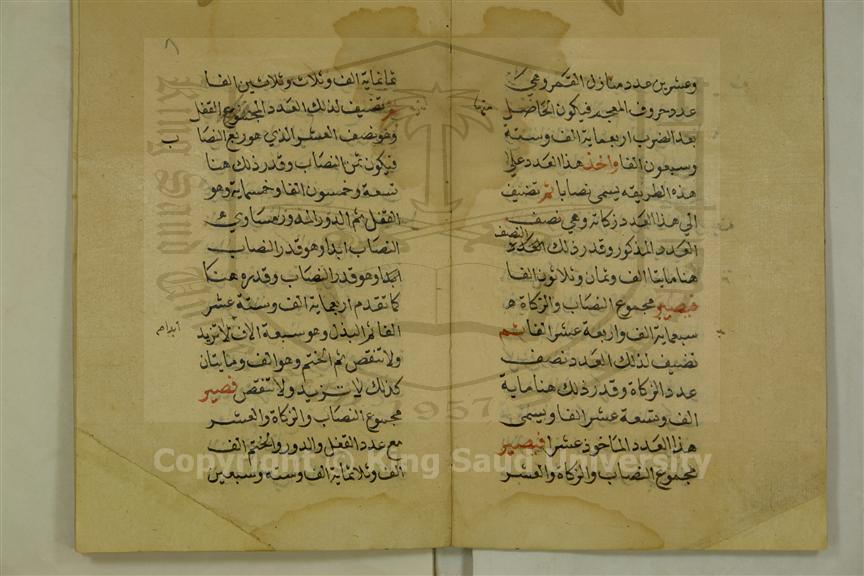 وعشرين عدد منازل القمر وهي
عدد حروف المعجم فيكون الحاصل منها
بعد الضرب اربعماية الف وستة
وسبعون الفا واخذ هذا العدد علي
هذه الطريقه يسمى نصابا ثم تضيف
الي هذا العدد زكاته وهي نصف
العدد المذكور وقدر ذلك النصف
هنا مايتا الف وثمان وثلاثون الفا
فيصير مجموع النصاب والزكاة
سبعماية الف واربعة عشر الفا ثم
تضيف لذلك العدد نصف
عدد الزكاة وقدر ذلك هنا ماية
الف وتسعة عشر الفا ويسمى
هذا العدد الماخوذ عشرا فيصير
مجموع النصاب والزكاة والعشر
٨
ثمانماية الف وثلاث وثلاثين الفا
ثم تضيف لذلك العدد المجموع القفل
وهو نصف العشر الذي هو ربع النصا ب
فيكون ثمن النصاب وقدر ذلك هنا
تسعة وخمسون الفا وخمسماية وهو
القفل ثم الدور
النصاب ابدا وهو قدر النصاب
ابدا وهو قدر النصاب وقدره هنا
كما تقدم اربعماية الف وستة عشر
الفا ثم البذل وهو سبعة الاف لا تزيد
ولا تنقص ثم الختم وهو الف ومايتان
كذلك لا تزيد ولا تنقص فصير
مجموع النصاب والزكاة والعشر
مع عدد القفل والدور والختم الف
الف وثلاثماية الفا وسته وسبعين
Copyright © King Saud University
1957